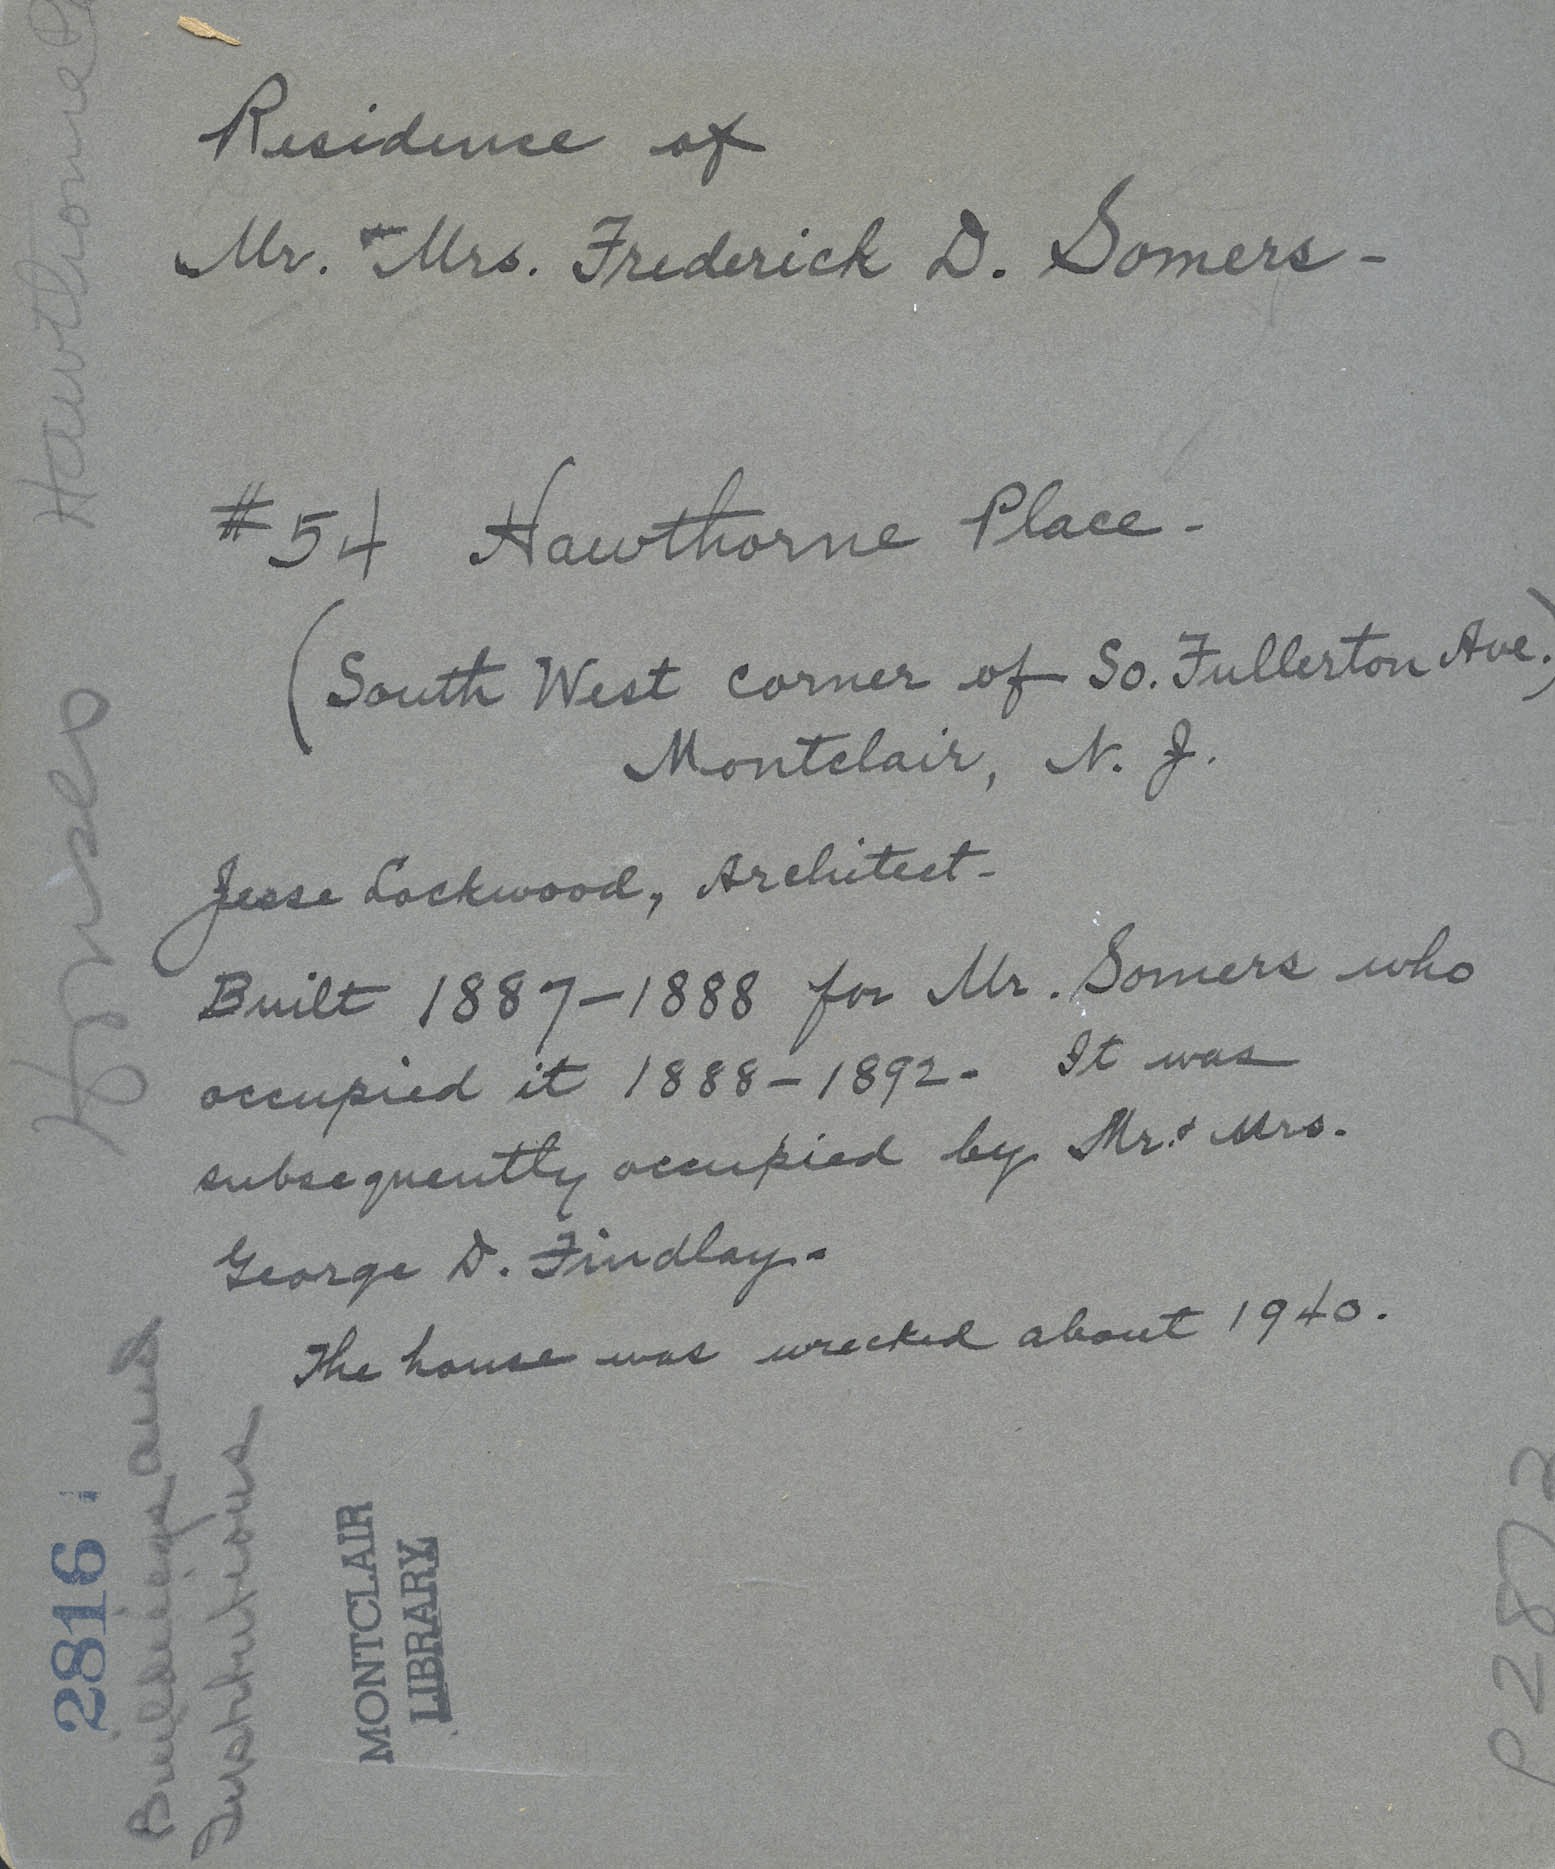 Residence of
Mr. & Mrs. Frederick D. Somers -
#54 Hawthorne Place -
(South West corner of So. Fullerton Ave.)
Montclair, N. J.
Jesse Lockwood, Architect -
Built 1887-1888 for Mr. Somers who
occupied it 1888-1892 - It was
subsequently occupied by Mr. & Mrs.
George D. Findlay -
The house was wrecked about 1940.
Hawthorne Pl
Houses
Buildings and
Institutions
2816
MONTCLAIR
LIBRARY
P2873